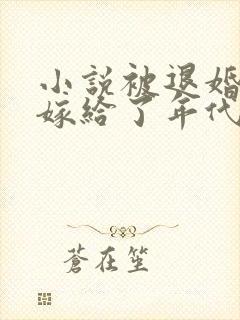 小説被退婚
嫁給了年代
蒼在笙